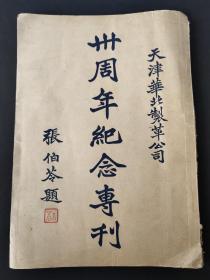 天津華北製革公司
卅周年紀念專刊
張伯苓題